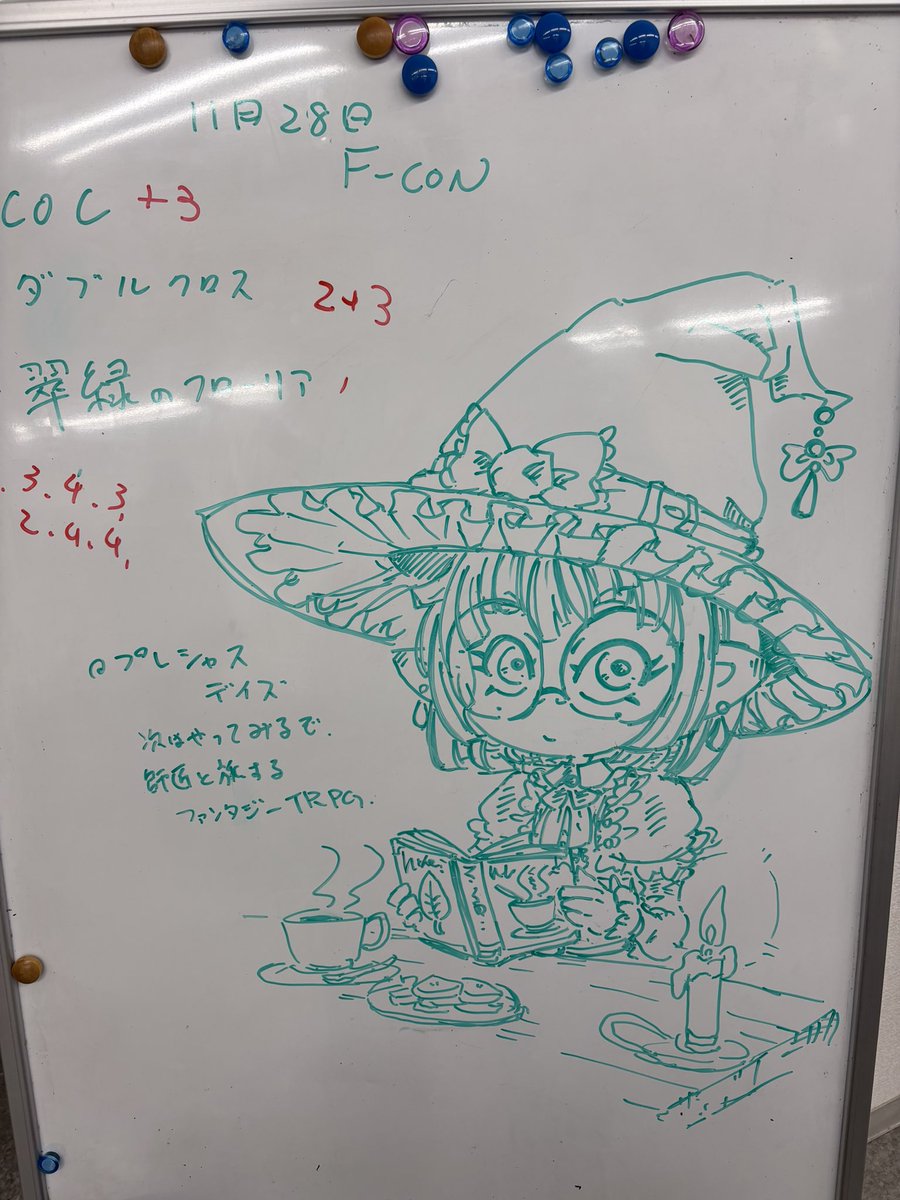 11月28日
F-CON
COC +3
ダブルクロス 2+3
翠緑のフローリア
.3.4.3
2.4.4
プレシャス
デイズ
次はやってみるで.
師匠と旅する
ファンタジーTRPG.